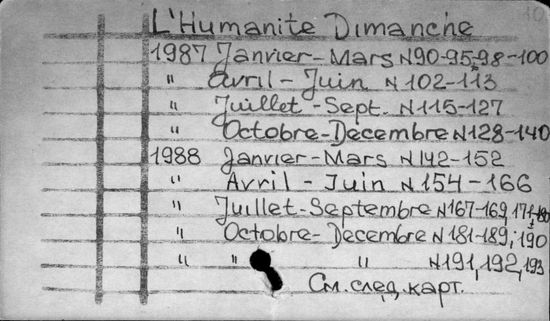 10
L'Humanite Dimanche
1987 Janvier-Mars N90-95, 98-100
" Avril-Juin N102-113
" Juillet-Sept. N115-127
" Octobre-Decembre N128-140
1988 Janvier-Mars N142-152
" Avril-Juin N154-166
" Juillet-Septembre N167-169, 171-180
" Octobre-Decembre N181-189, 190
" " " N191, 192, 193
См. след. карт.